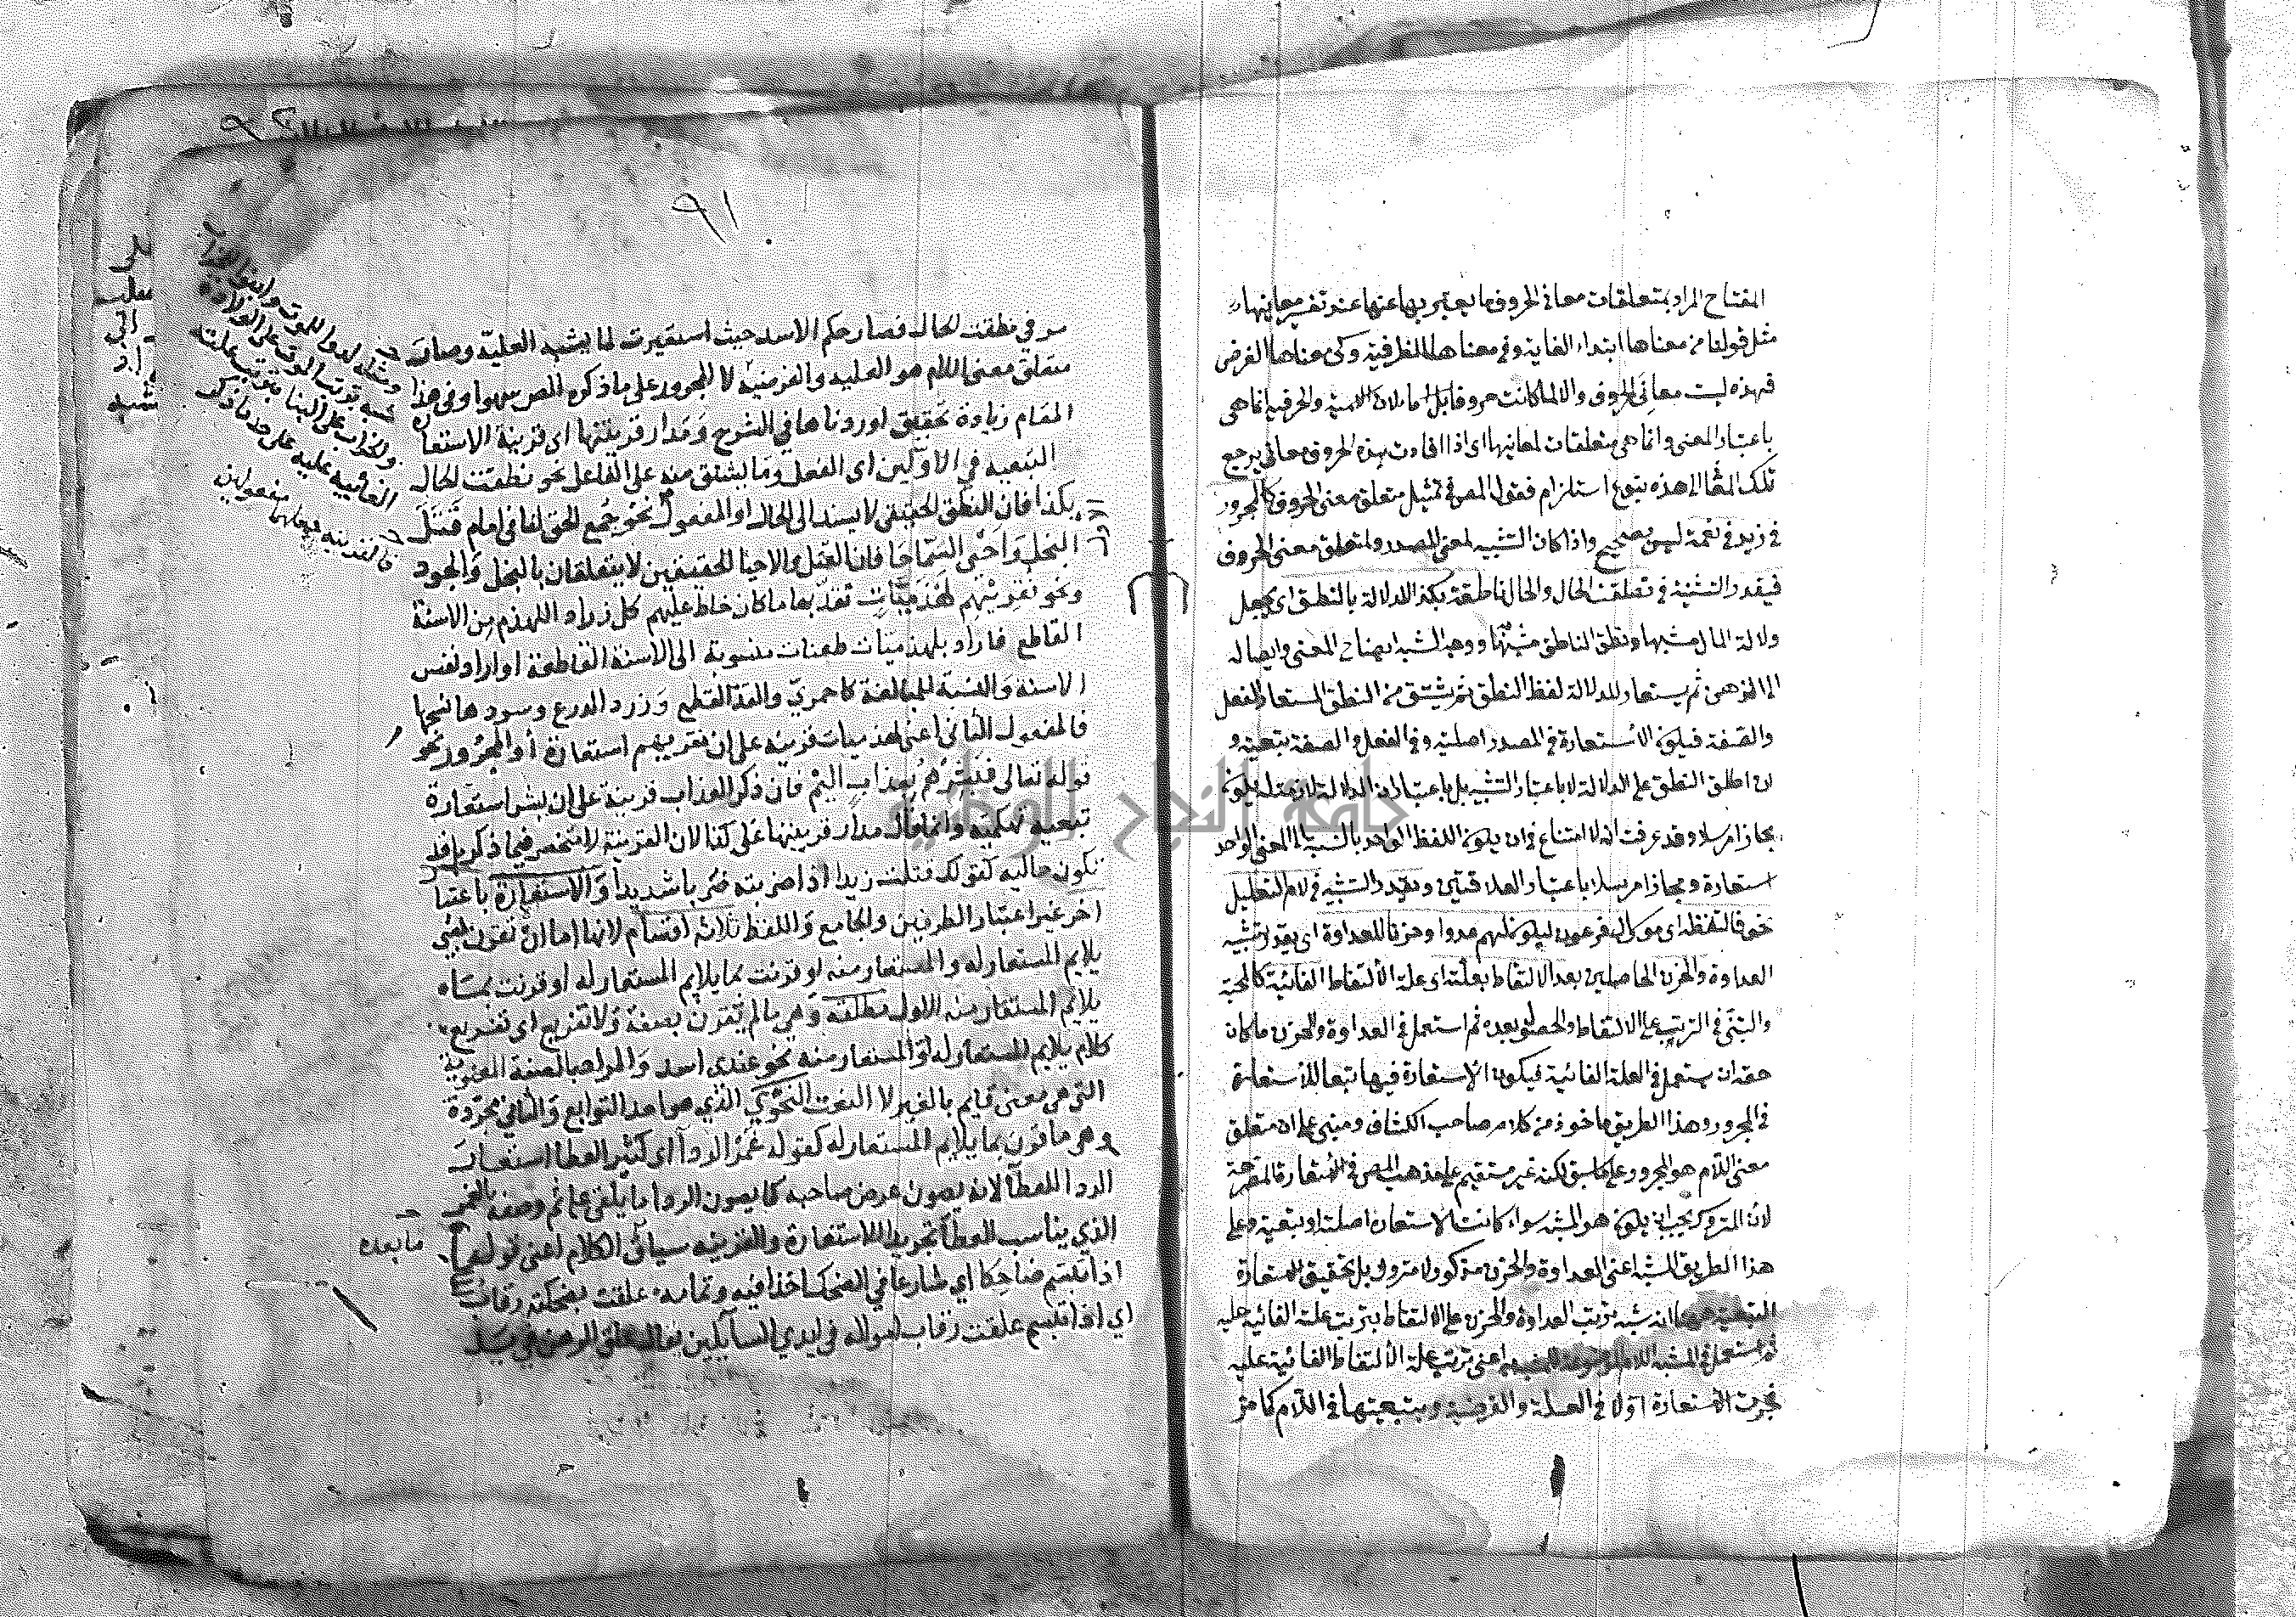 المفتاح المراد بمتعلقات معاني الحروف ما يعبر بها عنها عند تفسير معانيها
مثل قولنا من معناها ابتداء الغاية وفي معناها الظرفية وكي معناها الغرض
فهذه ليست معاني الحروف والا لما كانت حروفا بل اسما لان الاسمية والحرفية انما هي
باعتبار المعنى وانما هي متعلقات لمعانيها اى اذا افادت هذه الحروف معاني يرجع
تلك المعاني الى هذه بنوع استلزام فقول المص في تمثيل متعلق معنى الحروف كالمجرور
في زيد في نعمة ليس بصحيح واذا كان التشبيه لمعنى المصدر ولمتعلق معنى الحروف
فيقدر التشبيه في نطقت الحال والحال ناطقة بكذا للدلالة بالنطق اى يجعل
دلالة الحال مشبها ونطق الناطق مشبها به ووجه الشبه ايضاح المعنى وايصاله
الى الذهن ثم يستعار للدلالة لفظ النطق ثم يشتق من النطق المستعار الفعل
والصفة فيكون الاستعارة في المصدر اصلية وفي الفعل والصفة تبعية و
ان اطلق النطق على الدلالة لا باعتبار التشبيه بل باعتبار ان الدلالة لازمة له يكون
مجازا مرسلا وقد عرفت انه لا امتناع في ان يكون اللفظ الواحد بالنسبة الى المعنى الواحد
استعارة ومجازا مرسلا باعتبار العلاقتين ويقدر التشبيه في لام التعليل
نحو فالتقطه اى موسى ال فرعون ليكون لهم عدوا وحزنا للعداوة اى يقدر تشبيه
العداوة والحزن الحاصلين بعد الالتقاط بعلته اى علة الالتقاط الغائية كالمحبة
والتبني في الترتب على الالتقاط والحصول بعده ثم استعمل في العداوة والحزن ما كان
حقه ان يستعمل في العلة الغائية فيكون الاستعارة فيها تبعا للاستعارة
في المجرور وهذا الطريق ماخوذ من كلام صاحب الكشاف ومبنى على ان متعلق
معنى اللام هو المجرور على ما سبق لكنه غير مستقيم على مذهب المص في الاستعارة المصرحة
لان المتروك يجب ان يكون هو المشبه سواء كانت الاستعارة اصلية او تبعية وعلى
هذا الطريق المشبه اعنى العداوة والحزن مذكور لا متروك بل تحقيق الاستعارة
التبعية ههنا انه شبه ترتب العداوة والحزن على الالتقاط بترتب علة الغائية عليه
ثم استعمل في المشبه اللام الموضوعة للمشبه به اعنى ترتب علة الالتقاط الغائية عليه
فجرت الاستعارة اولا في العلية والغرضية وبتبعيتها في اللام كما مر
٩٢
٩١
مر في نطقت الحال فصار حكم الاسد حيث استعيرت لما يشبه العلية وصار
متعلق معنى اللام هو العلية والغرضية لا المجرور على ما ذكره المص سهوا وفى هذا
المقام زيادة تحقيق اوردناها في الشرح ومدار قرينتها اى قرينة الاستعارة
التبعية في الاولين اى الفعل وما يشتق منه على الفاعل نحو نطقت الحال
بكذا فان النطق الحقيقي لا يسند الى الحال او المفعول نحو جمع الحق لنا في امام قتل
البخل واحى السماحا فان القتل والاحيا الحقيقيين لا يتعلقان بالبخل والجود
ونحو نقريهم لهذميات نقد بها ما كان خاط عليهم كل زراد اللهذم من الاسنة
القاطع فاراد بلهذميات طعنات منسوبة الى الاسنة القاطعة او اراد نفس
الاسنة والنسبة للمبالغة كاحمري والقد القطع وزرد الدرع وسردها نسجها
فالمفعول الثانى اعنى لهذميات قرينة على ان نقريهم استعارة او المجرور نحو
قوله تعالى فبشرهم بعذاب اليم فان ذكر العذاب قرينة على ان بشر استعارة
تبعية تهكمية وانما قال مدار قرينتها على كذا لان القرينة لا تنحصر فيما ذكر بل قد
تكون حالية كقولك قتلت زيدا اذا ضربته ضربا شديدا والاستعارة باعتبا
اخر غير اعتبار الطرفين والجامع واللفظ ثلاثة اقسام لانها اما ان تقرن بشى
يلايم المستعار له والمستعار منه او قرنت بما يلايم المستعار له او قرنت بما
يلايم المستعار منه الاول مطلقة وهي ما لم تقرن بصفة ولا تفريع اى تفريع
كلام يلايم المستعار له او المستعار منه نحو عندى اسد والمراد بالصفة المعنوية
التى هي معنى قايم بالغير لا النعت النحوي الذي هو احد التوابع والثاني مجردة
وهي ما قرن بما يلايم المستعار له كقوله غمر الردآ اى كثير العطا استعار
الردا للعطآ لانه يصون عرض صاحبه كما يصون الردا ما يلقى عليه ثم وصفه بالغمر
الذي يناسب العطآ تجريدا للاستعارة والقرينة سياق الكلام اعنى قوله
ما بعده
اذا تبسم ضاحكا اي شارعا في الضحك اخذا فيه وتمامه علقت بضحكته رقاب
اي اذا تبسم علقت رقاب امواله في ايدي السآيلين يقال غلق الرهن في يد
ترتب الموت على الولادة
الغائية عليه على حد ما ذكر
جامعة النجاح الوطنية